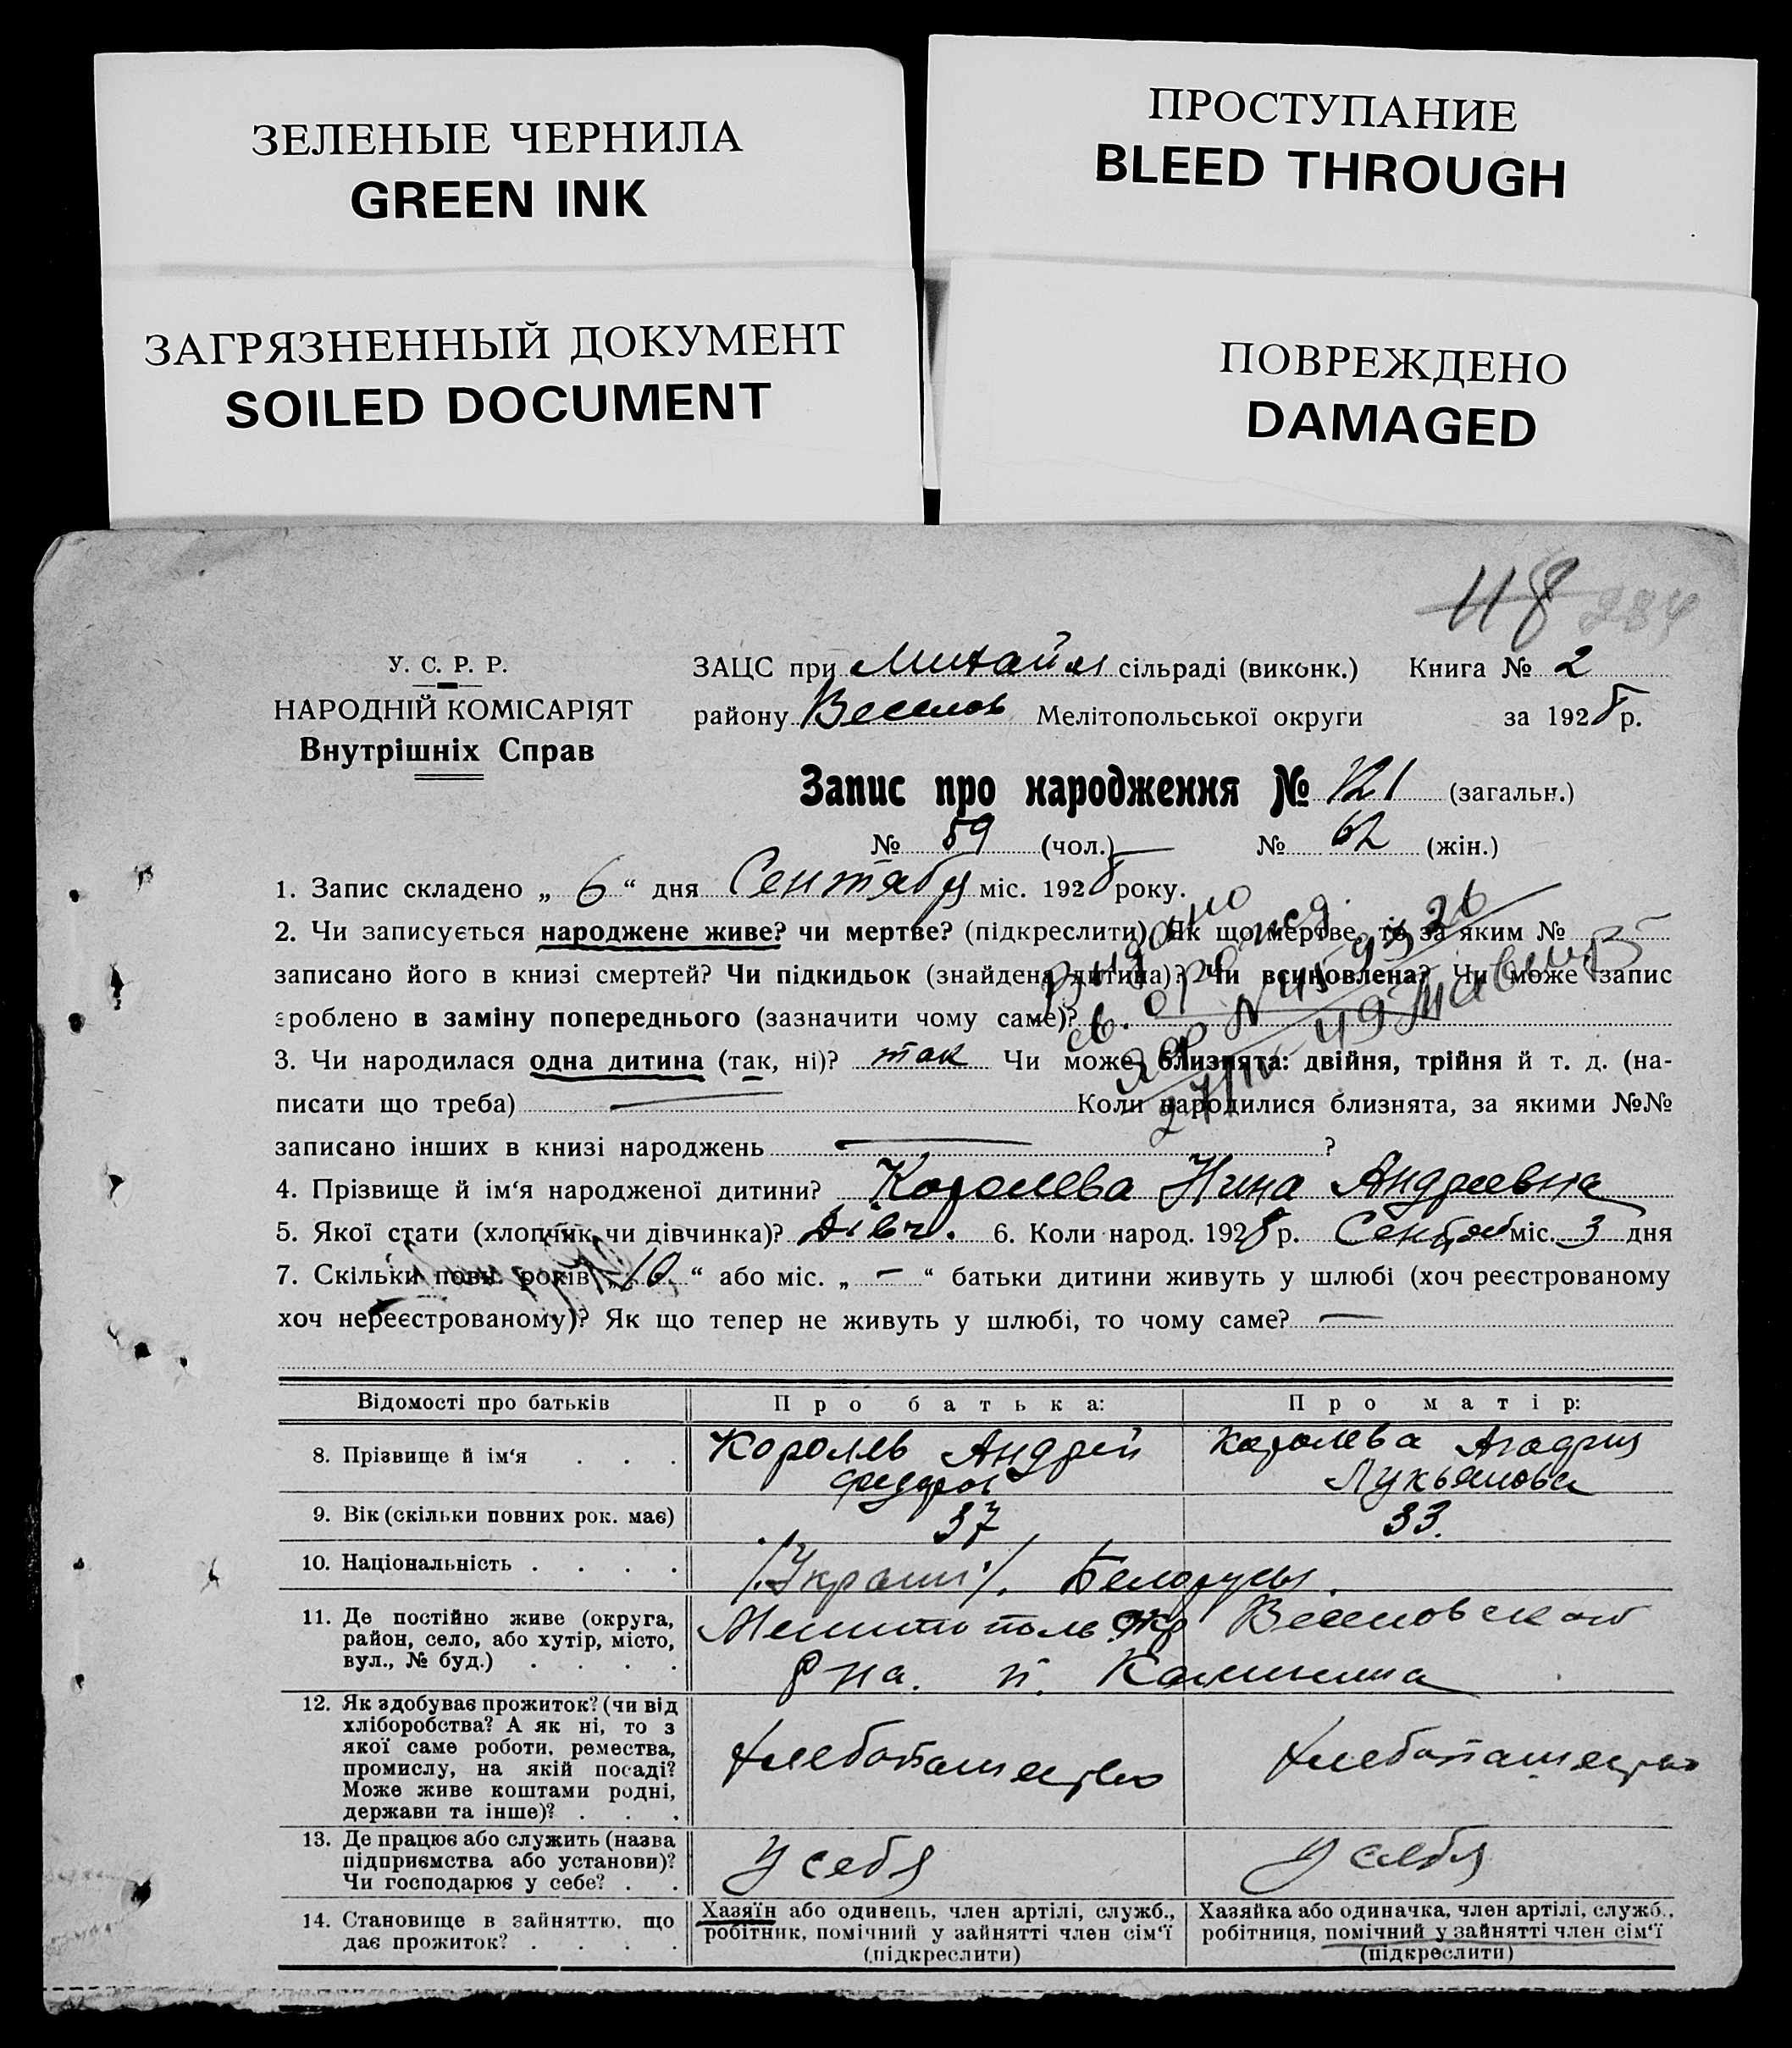 ЗЕЛЕНЫЕ ЧЕРНИЛА
GREEN INK
ПРОСТУПАНИЕ
BLEED THROUGH
ЗАГРЯЗНЕННЫЙ ДОКУМЕНТ
SOILED DOCUMENT
ПОВРЕЖДЕНО
DAMAGED
118 284
У. С. Р. Р.
НАРОДНІЙ КОМІСАРІЯТ
Внутрішніх Справ
ЗАЦС при Михайл сільраді (виконк.) Книга № 2
району Веселов Мелітопольської округи за 1928 р.
Запис про народження № 121 (загальн.)
№ 59 (чол.) № 62 (жін.)
1. Запис складено „ 6 “ дня Сентября міс. 1928 року.
2. Чи записується народжене живе? чи мертве? (підкреслити). Як що мертве, то за яким №
записано його в книзі смертей? Чи підкидьок (знайдена дитина)? Чи всиновлена? Чи може запис
зроблено в заміну попереднього (зазначити чому саме)?
3. Чи народилася одна дитина (так, ні)? так Чи може близнята: двійня, трійня й т. д. (на-
писати що треба) — Коли народилися близнята, за якими №№
записано інших в книзі народжень — ?
4. Прізвище й ім‘я народженої дитини? Королева Нина Андреевна
5. Якої стати (хлопчик чи дівчинка)? Дівч. 6. Коли народ. 1928 р. Сентяб міс. 3 дня
7. Скільки повн. років „ 10 “ або міс. „ — “ батьки дитини живуть у шлюбі (хоч реєстрованому
хоч нереєстрованому)? Як що тепер не живуть у шлюбі, то чому саме? —
Відомості про батьків Про батька: Про матір:
8. Прізвище й ім‘я . . . Королев Андрей Королева Агафия
Федоров Лукьяновна
9. Вік (скільки повних рок. має) 37 33.
10. Національність . . . . /Украин/. Белорусы.
11. Де постійно живе (округа,
район, село, або хутір, місто,
вул., № буд.) . . . .
Мелитополь окр Веселовского
р на. п. Калинина
12. Як здобуває прожиток? (чи від
хліборобства? А як ні, то з
якої саме роботи, ремества,
промислу, на якій посаді?
Може живе коштами родні,
держави та інше)? . . .
Хлебопашество Хлебопашество
13. Де працює або служить (назва
підприємства або установи)?
Чи господарює у себе? . .
У себя У себя
14. Становище в зайняттю, що
дає прожиток? . . . .
Хазяїн або одинець, член артілі, служб.,
робітник, помічний у зайнятті член сім‘ї
(підкреслити)
Хазяйка або одиначка, член артілі, служб.,
робітниця, помічний у зайнятті член сім‘ї
(підкреслити)